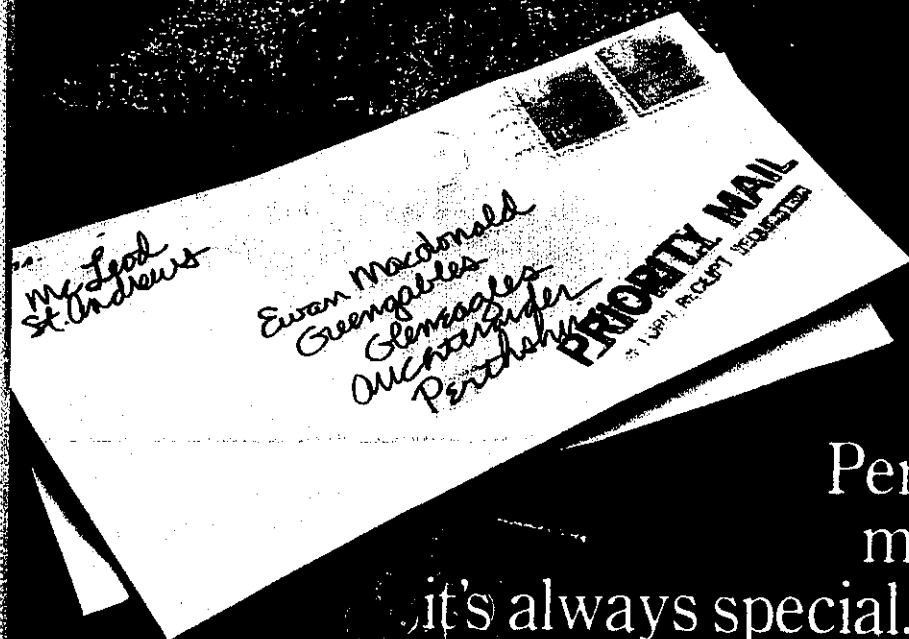 McLeod
St. Andrews
Ewan Macdonald
Greengables
Gleneagles
Auchterarder
Perthshire
PRIORITY MAIL
Per
m
it's always special.